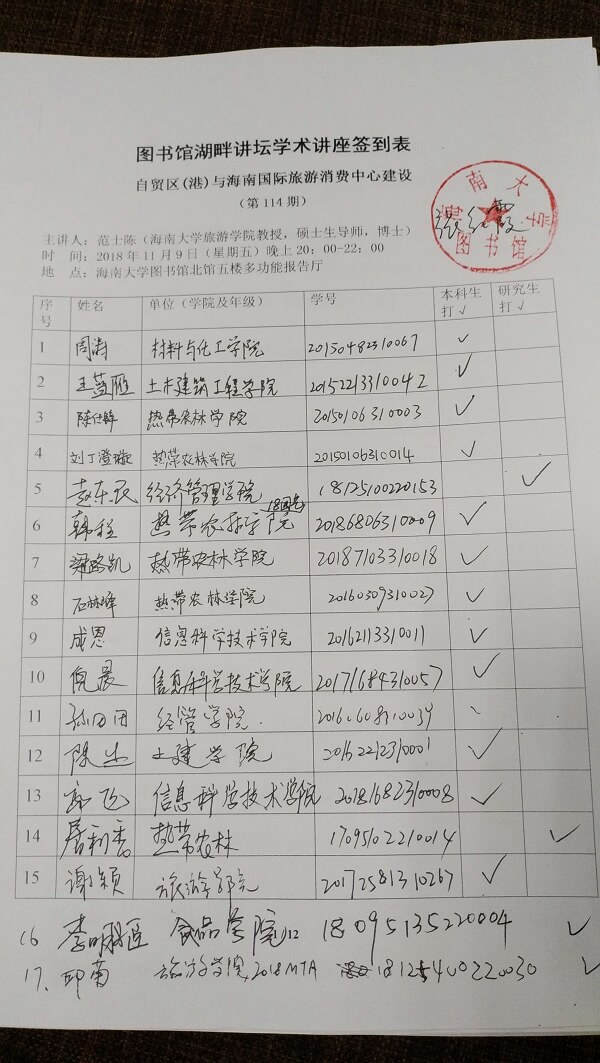 图书馆湖畔讲坛学术讲座签到表
自贸区(港)与海南国际旅游消费中心建设
(第 114 期)
海南大学
图书馆
主讲人：范士陈（海南大学旅游学院教授，硕士生导师，博士）
时 间：2018 年 11 月 9 日（星期五）晚上 20：00-22：00
地 点：海南大学图书馆北馆五楼多功能报告厅
序号 姓名 单位（学院及年级） 学号 本科生打√ 研究生打√
1 周涛 材料与化工学院 20150482310067 √
2 王蓝雁 土木建筑工程学院 20152213310042 √
3 热带农林学院 20150106310003 √
4 刘丁澄璇 热带农林学院 20150106310014 √
5 赵东民 经济管理学院 18125100220153 √
6 韩程 热带农林学院 20186806310009 √
7 梁路凯 热带农林学院 20187103310018 √
8 石林峰 热带农林学院 20160309310027 √
9 成恩 信息科学技术学院 20162113310011 √
10 倪晨 信息科学技术学院 20171684310057 √
11 孙田田 经管学院
12 陈 土建学院 √
13 郭飞 信息科学技术学院 20181682310008 √
14 屠利香 热带农林 17095102210014 √
15 谢颖 旅游学院 20172581310267 √
16 李明 食品学院 18095135220004 √
17、邱菊 旅游学院 2018 MTA 18125400220030 √